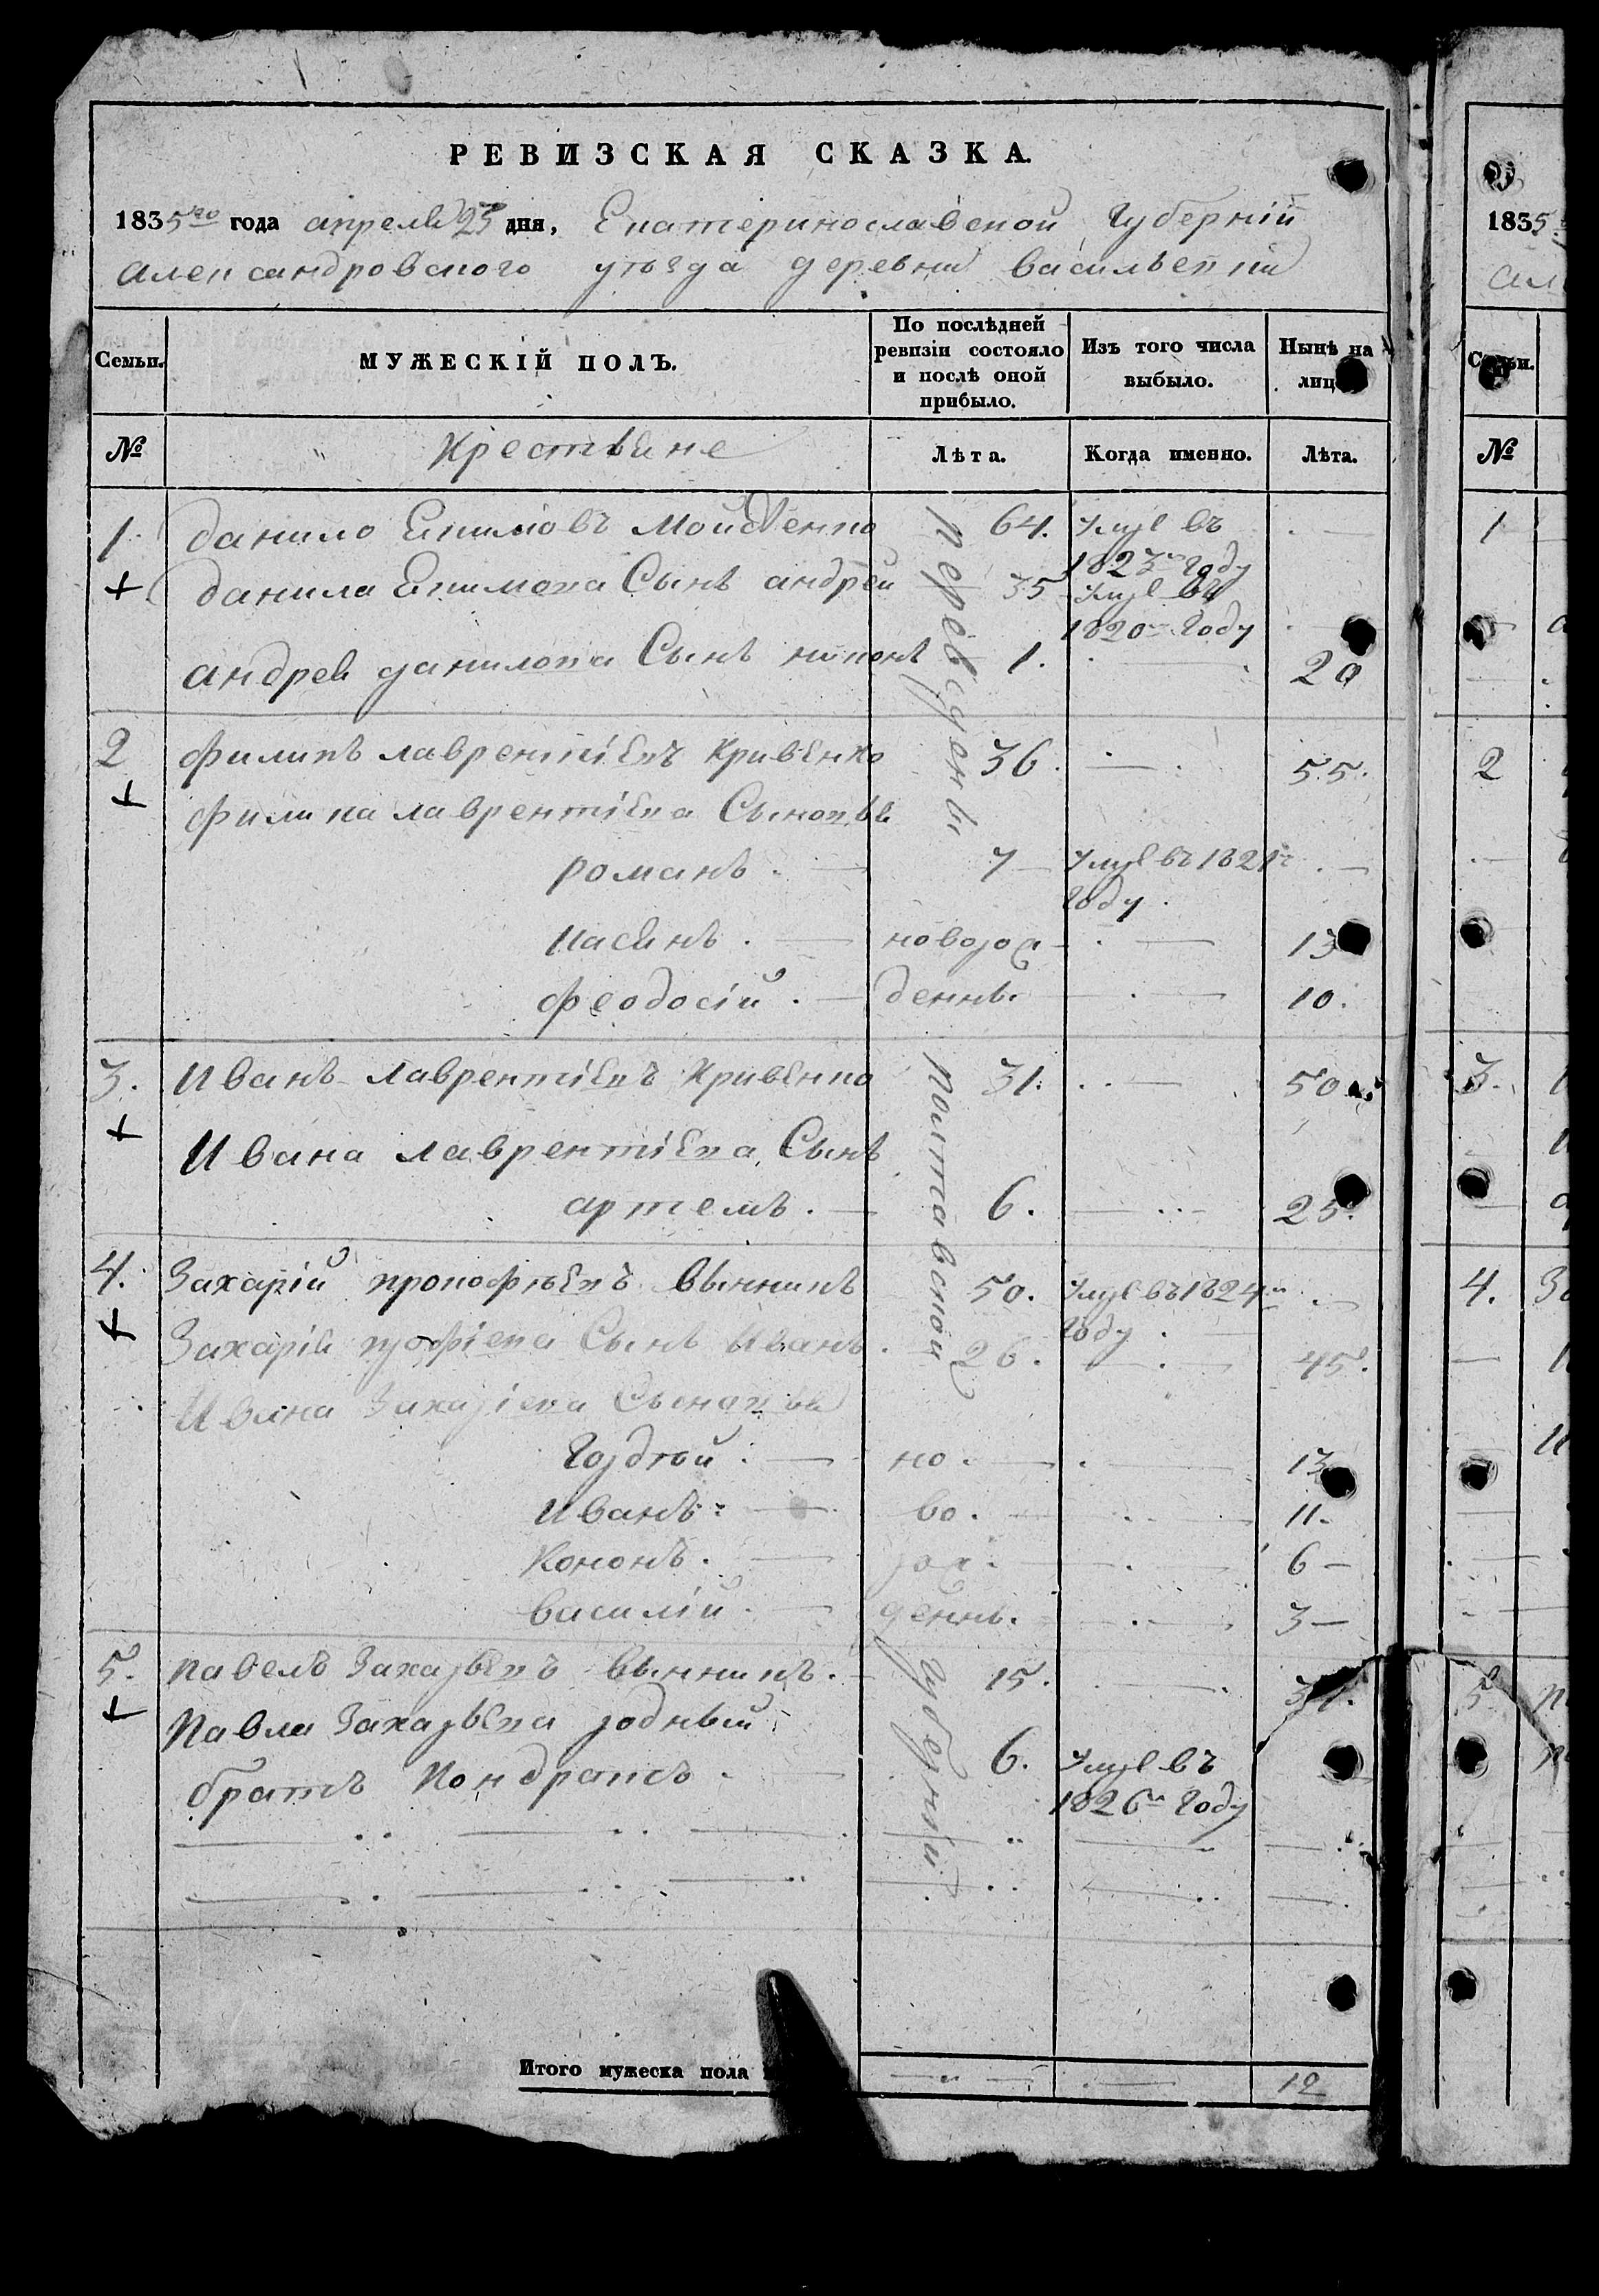 РЕВИЗСКАЯ СКАЗКА.
1835го года апреля 25 дня, Екатеринославской Губерніи
александровского уѣзда деревни васильевки
Семьи. МУЖЕСКІЙ ПОЛЪ. По послѣдней ревизіи состояло и послѣ оной прибыло. Изъ того числа выбыло. Нынѣ на лицо
№ Крестьяне Лѣта. Когда именно. Лѣта.
1. данило Екимовъ Мойсѣенко 64. умре въ 1823м году
данила Екимова Сынъ андрей 35 умре въ 1820м году
андрея данилова Сынъ 1. 20
2 филипъ лаврентіевъ Кривенко 36. 55.
филипа лаврентіева Сыновья
романъ. 7 умре въ 1821м году.
новорож- 13
феодосій. денны. 10.
3. Иванъ лаврентіевъ Кривенко 31. 50
Ивана лаврентіева Сынъ
артемъ. 6. 25.
4. Захарій прокофьевъ вынникъ 50. умре въ 1824м году.
Захарія Сынъ Иванъ. 26. 45.
Ивана Захаріева Сыновья
Гордѣй. но. 13
Иванъ. во. 11.
Кононъ. рож. 6
василій. денны. 3
5. павелъ Захарьевъ вынникъ. 15.
павла Захарьева родный
братъ Кондратъ. 6. умре въ 1826м году
переведены
Полтавской
губерніи.
Итого мужеска пола 12
1835
Семьи.
№
1
2
3.
4.
5.